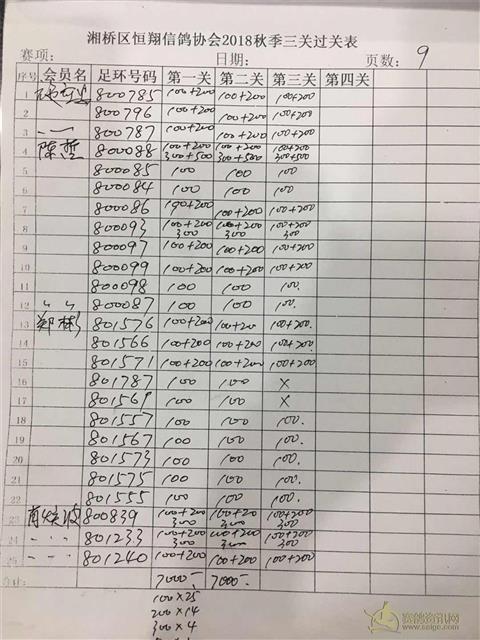 湘桥区恒翔信鸽协会2018秋季三关过关表
赛项: 日期: 页数: 9
序号 会员名 足环号码 第一关 第二关 第三关 第四关
1 800785 100+200 100+200 100+200
2 800796 100+200 100+200 100+200
3 800787 100+200 100+200 100+200
4 陈哲 800088 100+200 300+500 100+200 300+500 100+200 300+500
5 800085 100 100 100
6 800084 100 100 100
7 800086 100+200 100+200 100+200
8 800093 100+200 300 100+200 300 100+200 300
9 800097 100+200 100+200 100+200
10 800099 100+200 100+200 100+200
11 800098 100 100 100
12 〃 800087 100 100 100.
13 郑彬 801576 100+200 100+200 100+200.
14 801566 100+200 100+200 100+200
15 801571 100+200 100+200 100+200
16 801787 100 100 ×
17 801561 100 100 ×
18 801557 100 100 100.
19 801567 100 100 100.
20 801573 100 100 100.
21 801575 100 100 100.
22 801555 100 100 100.
23 800839 100+200 300 100+200 300 100+200 300
24 801233 100+200 300 100+200 300 100+200 300
25 801240 100+200 100+200 100+200
合计: 7000- 7000-
100×25
200×14
300×4
赛鸽资讯网
www.saige.com